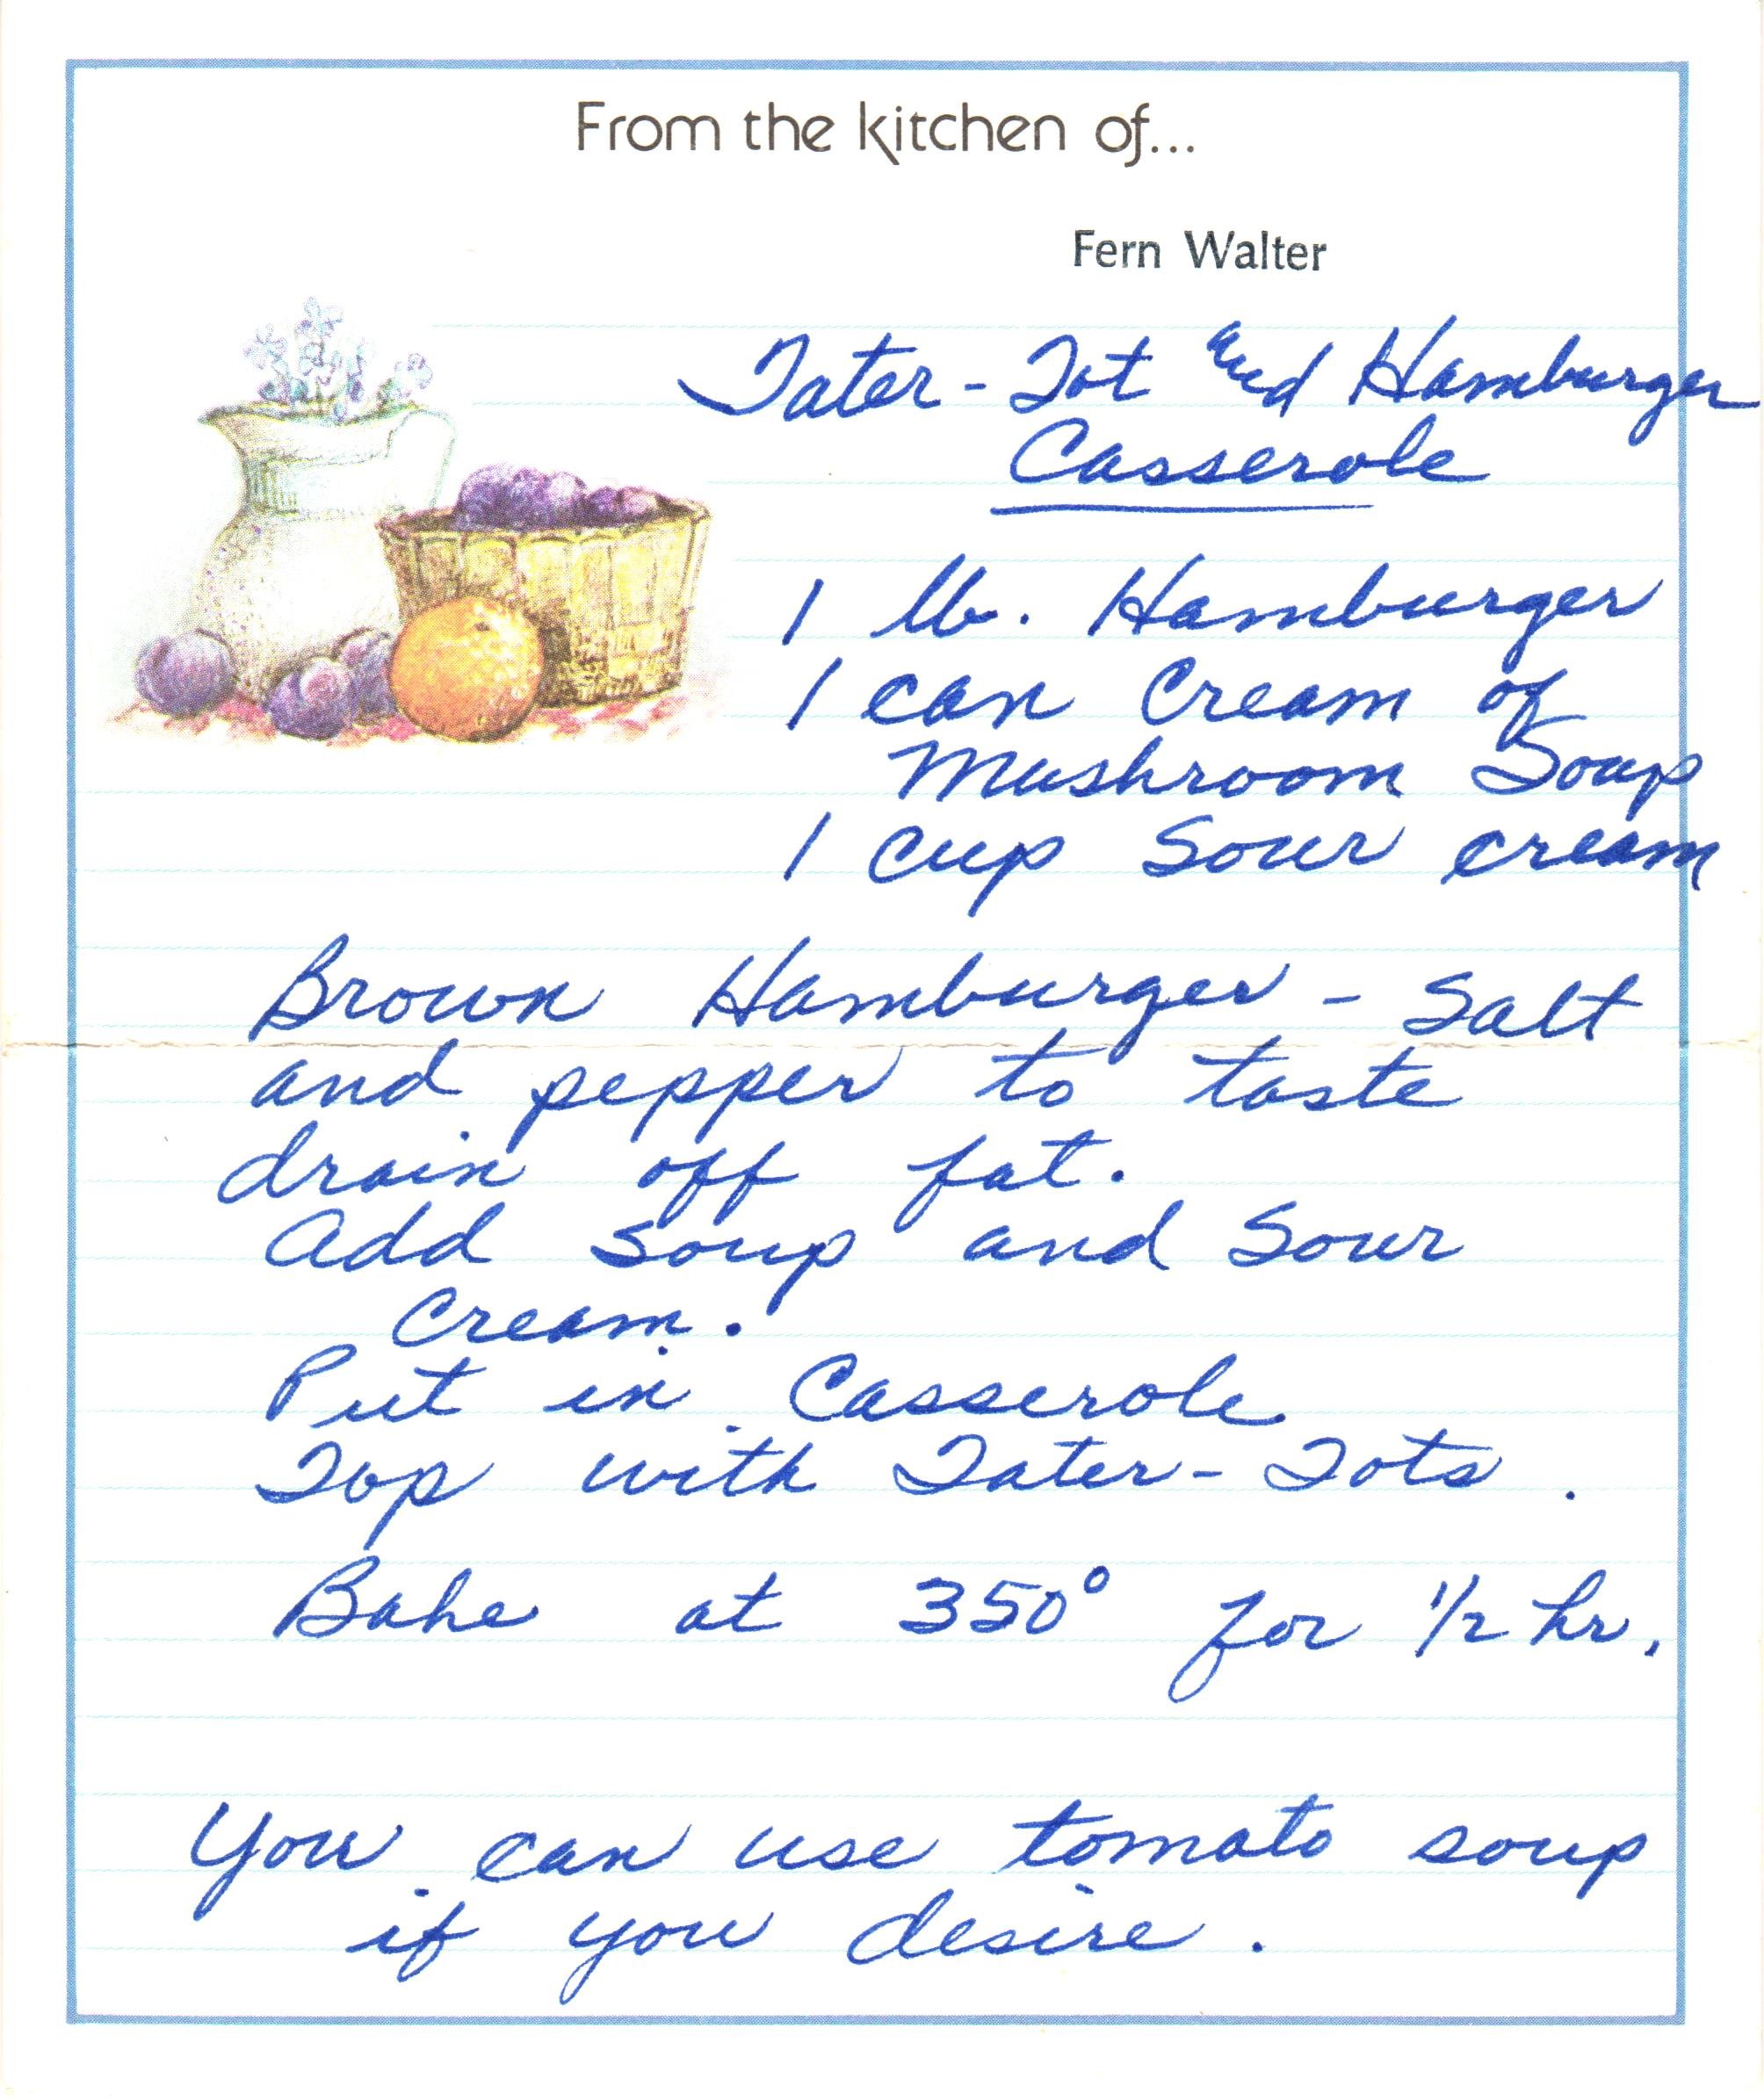 From the kitchen of...
Fern Walter
Tater-Tot and Hamburger
Casserole
1 lb. Hamburger
1 can Cream of
Mushroom Soup
1 cup Sour cream
Brown Hamburger - Salt
and pepper to taste
drain off fat.
Add soup and Sour
Cream.
Put in Casserole
Top with Tater-Tots.
Bake at 350° for 1/2 hr.
You can use tomato soup
if you desire.